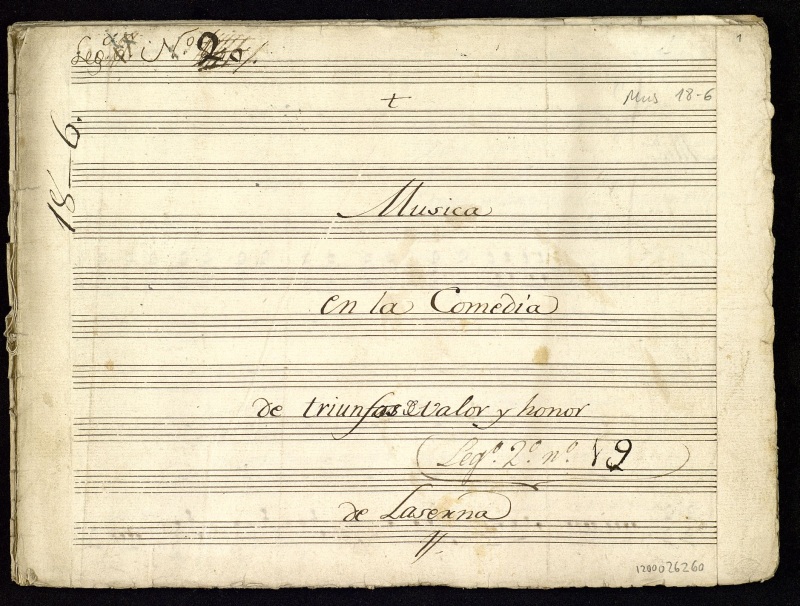 Leg.º Nº 2
1
t
Mus 18-6
18-6.
Musica
en la Comedia
de triunfos de valor y honor
(Legº. 2º. nº. 19)
de Laserna
1200026260